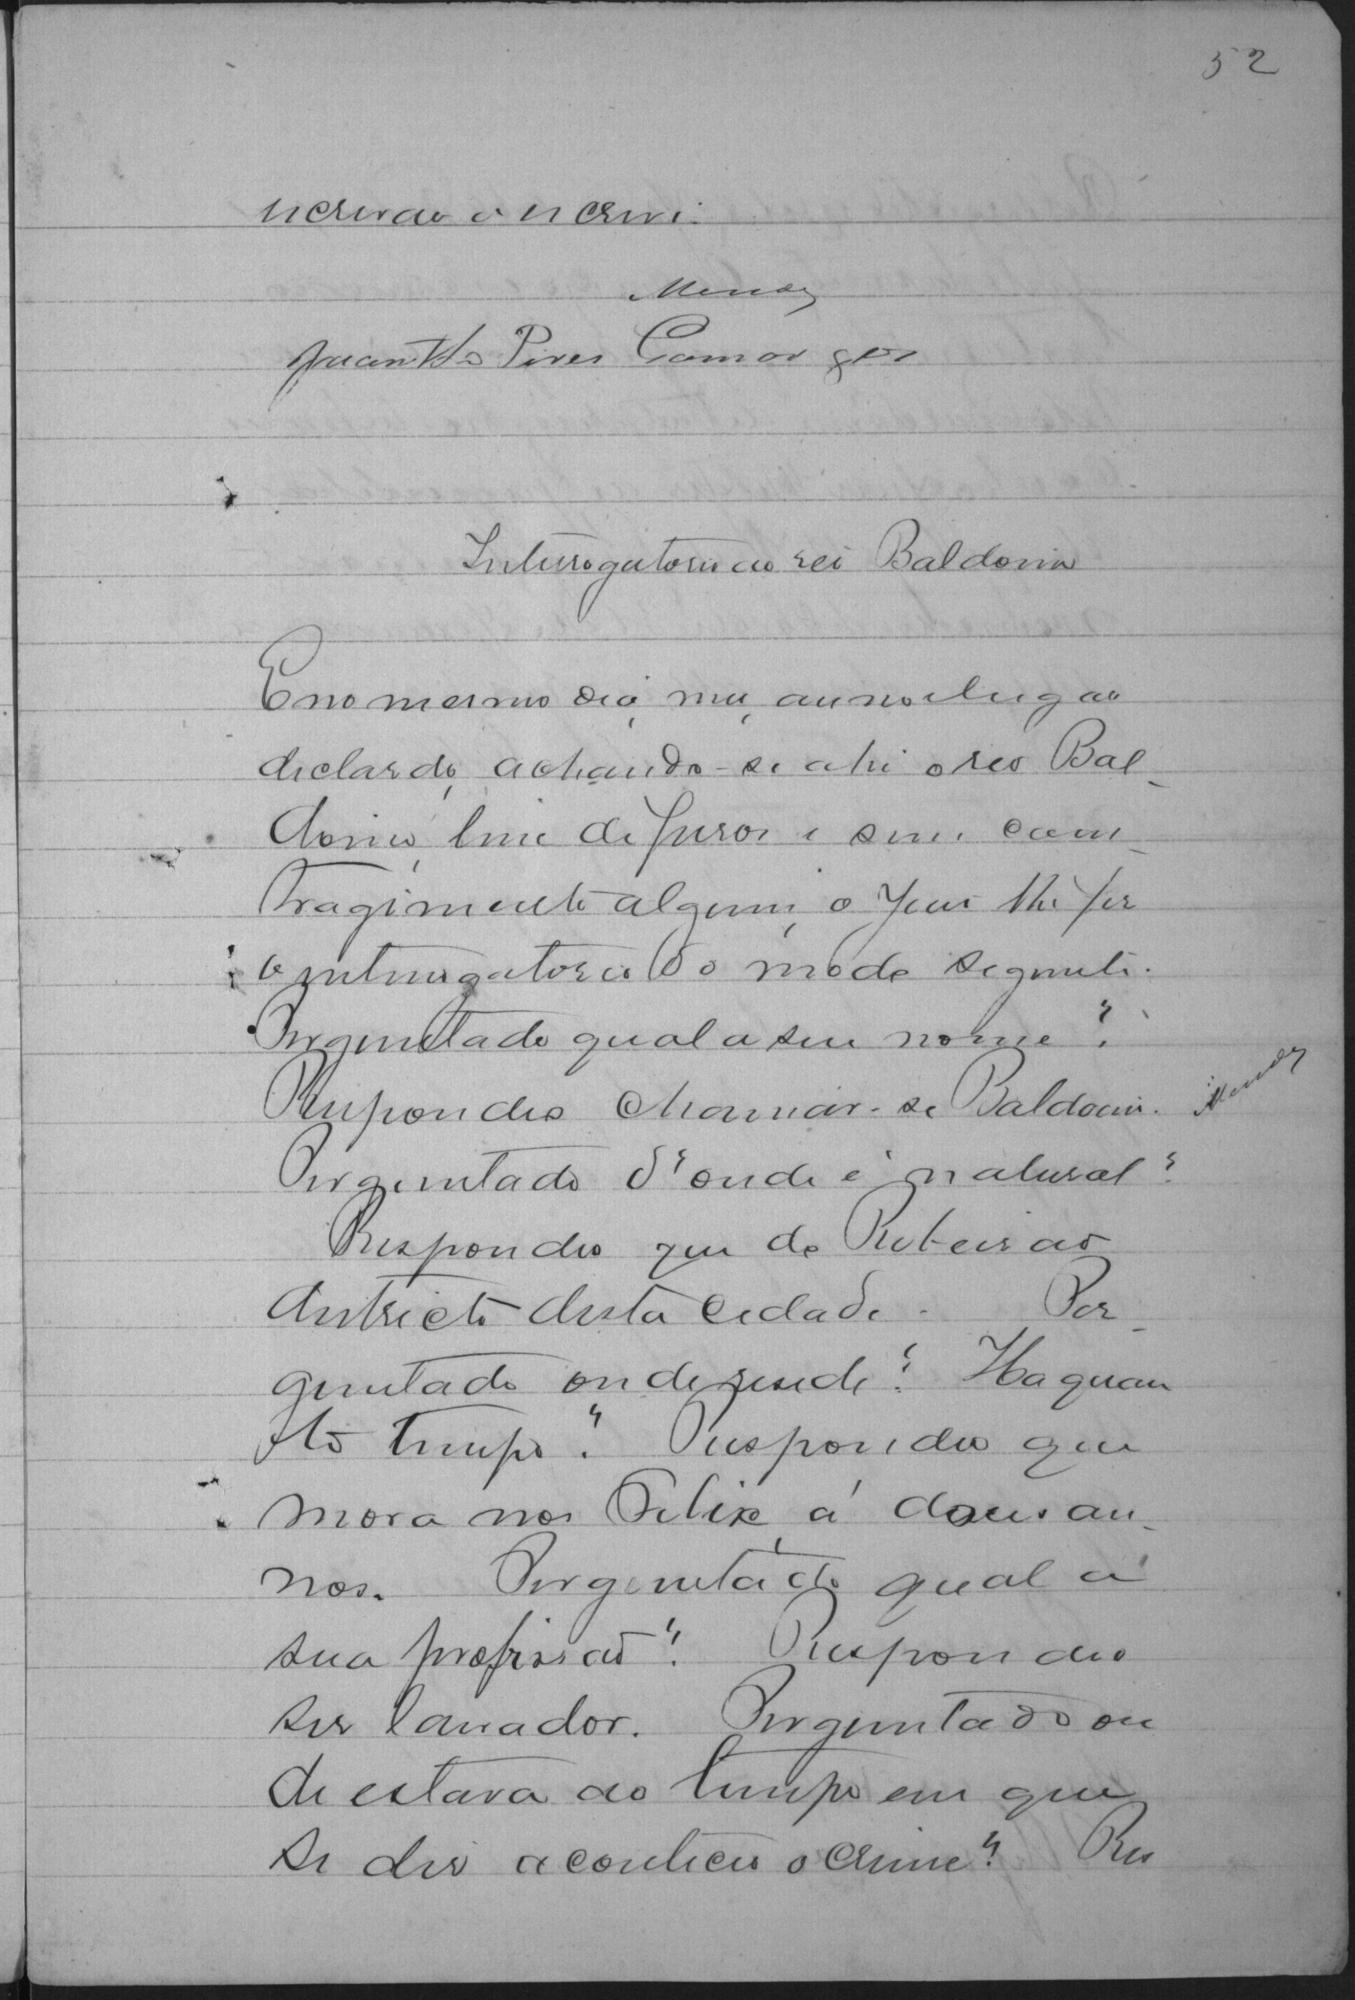 52
escrivão o escrevi.
Mendes
Pires Camargos
Interrogatorio ao reo Baldoino
E no mesmo dia, mez, anno e lugar
declarado, achando-se ahi o reo Bal-
doino, livre de ferros e sem cons-
tragimento algum, o Juiz lhe fez
o interrogatorio do modo seguinte.
Perguntado qual o seu nome?
Respondeo chamar-se Baldoino.
Mendes
Perguntado d'onde é natural?
Respondeo que do Ribeirão
districto desta cidade. Per-
guntado onde reside? Ha quan
to tempo? Respondeo que
mora nos Felix, á dous an-
nos. Perguntado qual a
sua profissão? Respondeo
ser lavrador. Perguntado on
de estava ao tempo em que
se diz aconteceo o crime? Res